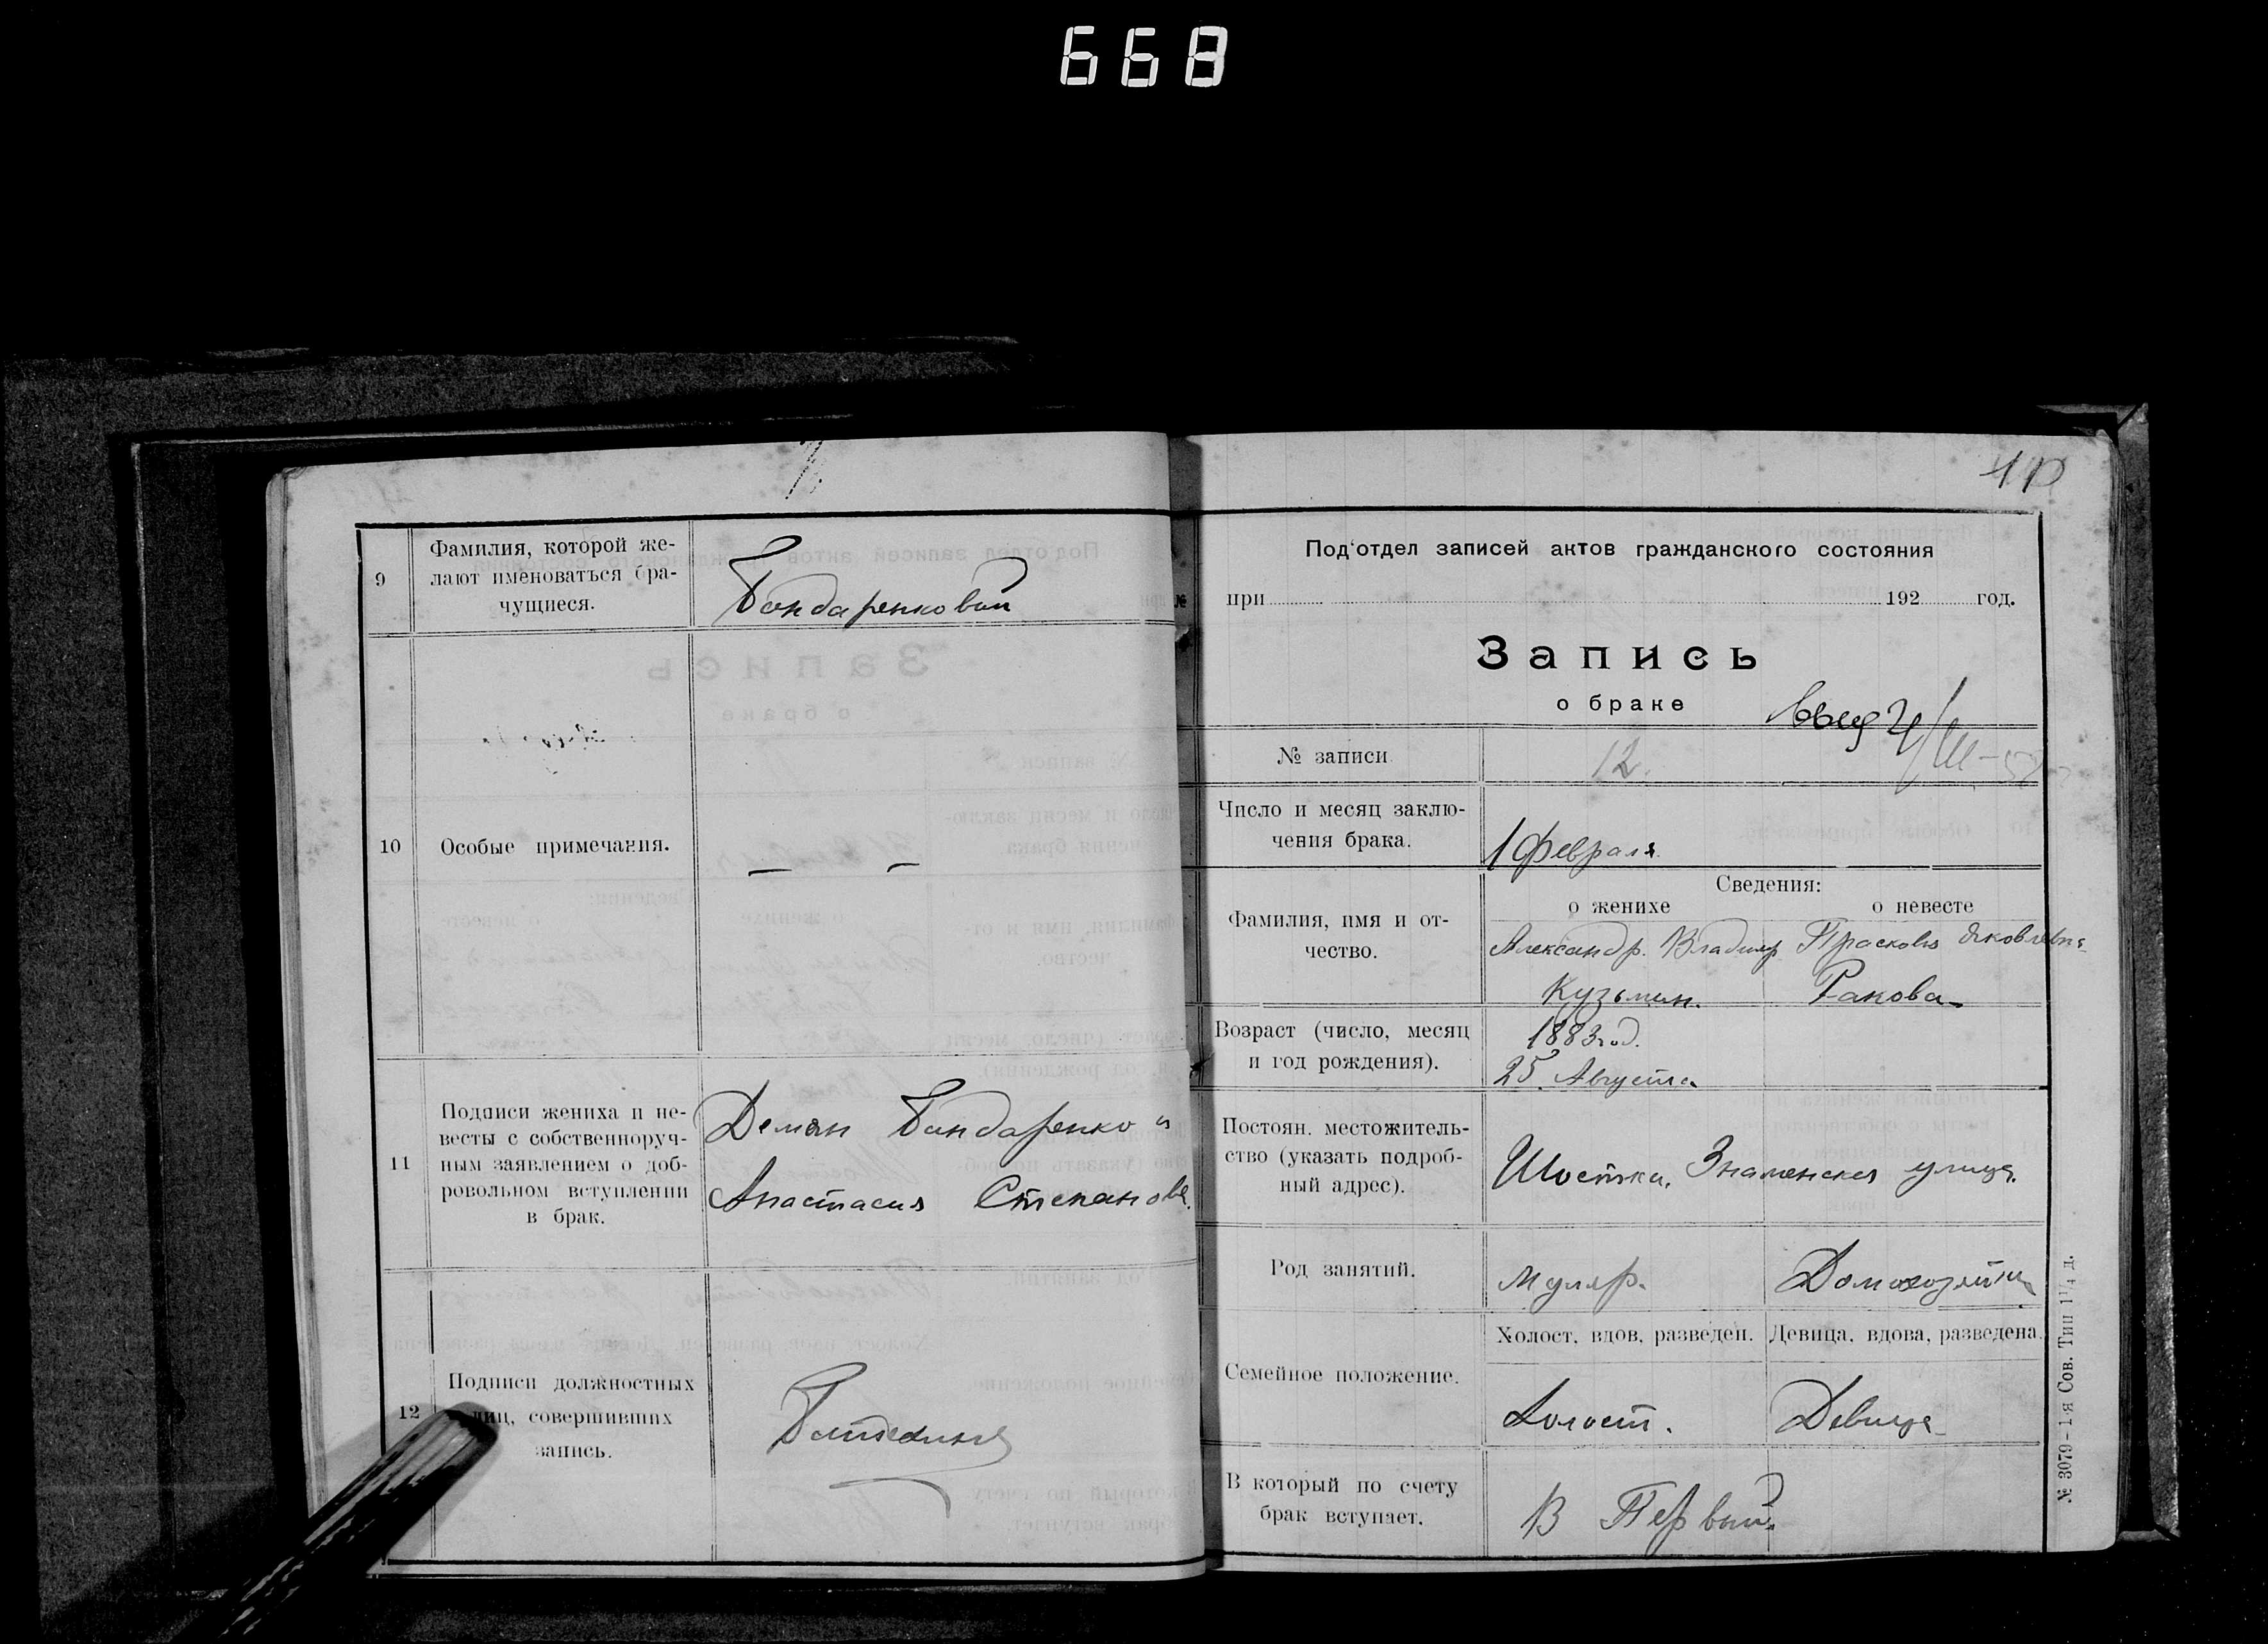 668
9
Фамилия, которой же-
лают именоваться бра-
чущиеся.
Бондаренковый
10
Особые примечания.
— —
11
Подписи жениха и не-
весты с собственноруч-
ным заявлением о доб-
ровольном вступлении
в брак.
Демян Бондаренко и
Анастасия Степанова
12
Подписи должностных
лиц, совершивших
запись.
Под'отдел записей актов гражданского состояния
при 192 год.
Запись
о браке
№ записи
12.
Число и месяц заклю-
чения брака.
1 Февраля
Сведения:
о женихе о невесте
Фамилия, имя и от-
чество.
Александр. Владимр Прасковья Яковлевна
Кузьмин. Ракова
Возраст (число, месяц
и год рождения).
1883 год.
25 Августа
Постоян. местожитель-
ство (указать подроб-
ный адрес).
Шостка, Знаменская улица.
Род занятий.
Муляр. Домохозяйка
Семейное положение.
Холост, вдов, разведен. Девица, вдова, разведена.
Холост. Девица
В который по счету
брак вступает.
В Первый.
№ 3079 – 1-я Сов. Тип 1¼ д.